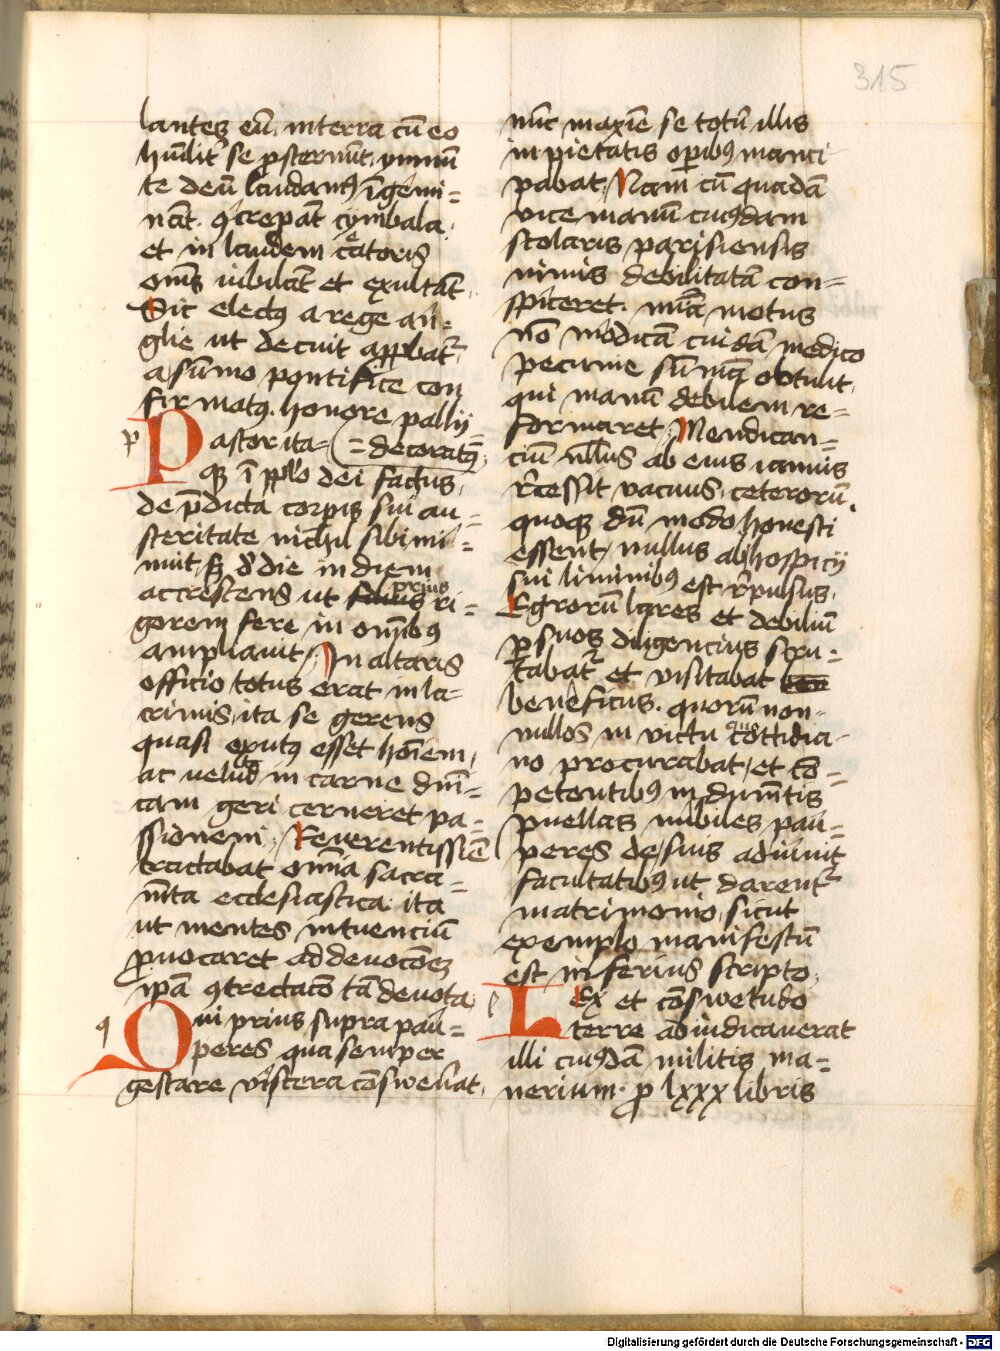 315
lantes eū. in terra cū eo
hūilit̄ se ꝓsternūt. vnimū
te deū laudamꝰ īgemi=
nāt. ꝯcrepāt cymbala.
et in laudem c̄atoris
om̄s iubilāt et exultāt.
Sic electꝰ a rege an=
glie ut decuit appꝛobat᷑
a sūmo pontifice con
firmatꝰ. honore pallij
=decoratꝰ=
p
Pastor ita=
qꝫ ī pplo dei factus.
de p̄dicta corpis sui au=
steritate nichil sibi mi=
nuit. sꝫ d̓ die in diem
accrescens ut prius ri=
gorem fere in omībꝰ
ampliauit. In altaris
officio totus erat in la=
crimis. ita se gerens
quasi exutꝰ esset hoīem.
ac velud in carne dnī=
cam geri cerneret pa=
ssionem. Reuerentissīē
tractabat omīa sacra=
m̄ta ecclesiastica. ita
ut mentes intuenciū
ꝓuocaret ad deuocōeꝫ
ipā ꝯtrectacō tā deuota.
q
Qui prius supra pau=
peres qua semper
gestare viscera cōsweuat.
nūc maxīe se totū illis
in pietatis opibꝰ manci
pabat. Nam cū quadā
vice manū cuiꝰdam
scolaris parisiensis
nimis debilitatā con=
spiceret. mīa motus
nō modicā cuidā medico
pecunie sūmā obtulit.
qui manū debitem re=
formaret. Mendican=
ciū nllūs ab eius ianuis
r̄cessit vacuus. ceterorū.
quoqꝫ dū modo honesti
essent. nullus ab hospicij
sui liminibꝰ est r̄pulsus.
Egrorū lares et debiliū
ꝑ suos diligencius scru=
tabat᷑ et visitabat
beneficus. quorū non=
nullos in victu cottidia=
no procurabat. et cō=
petentibꝰ indumētis
puellas nubiles pau=
peres de suis adiuuit
facultatibꝰ ut darent᷑
matrimonio. sicut
exemplo manifestū
est inferius scripto.
l
LEx et cōswetudo
terre abiudicauerat
illi cuiꝰdā militis ma=
nerium. ꝓ lxxx libris
Digitalisierung gefördert durch die Deutsche Forschungsgemeinschaft - DFG